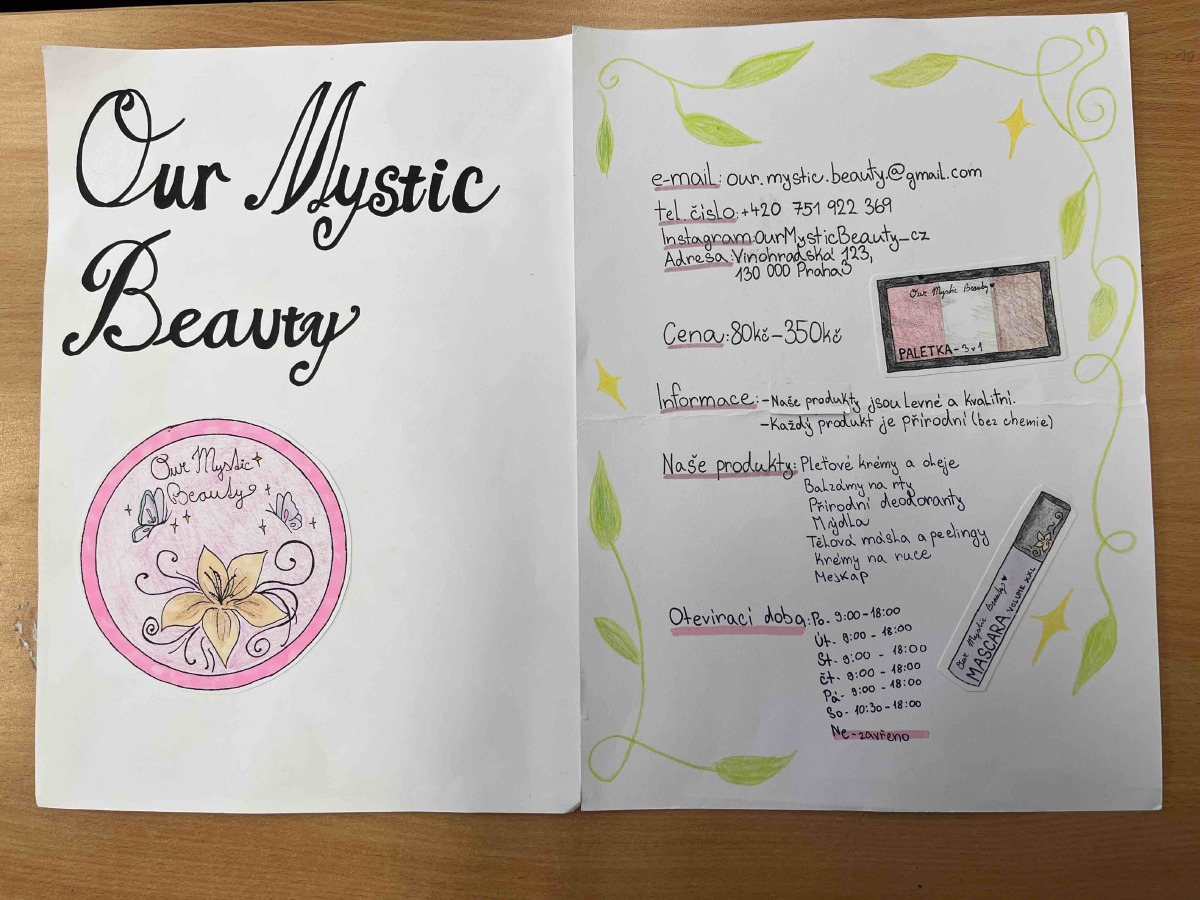 Our Mystic
Beauty
Our Mystic
Beauty
e-mail: our.mystic.beauty.@gmail.com
tel. číslo: +420 751 922 369
Instagram: OurMysticBeauty_cz
Adresa: Vinohradská 123,
130 000 Praha3
Our Mystic Beauty♥
PALETKA-3v1
Cena: 80kč-350kč
Informace: -Naše produkty jsou levné a kvalitní.
-Každý produkt je přírodní (bez chemie)
Naše produkty: Pleťové krémy a oleje
Balzámy na rty
Přírodní deodoranty
Mýdla
Tělová máska a peelingy
Krémy na ruce
Mejkap
Our Mystic Beauty♥
MASCARA VOLUME XXL
Otevírací doba: Po. 9:00-18:00
Út. 9:00 - 18:00
St. 9:00 - 18:00
čt. 9:00 - 18:00
Pá- 9:00 - 18:00
So- 10:30-18:00
Ne-zavřeno